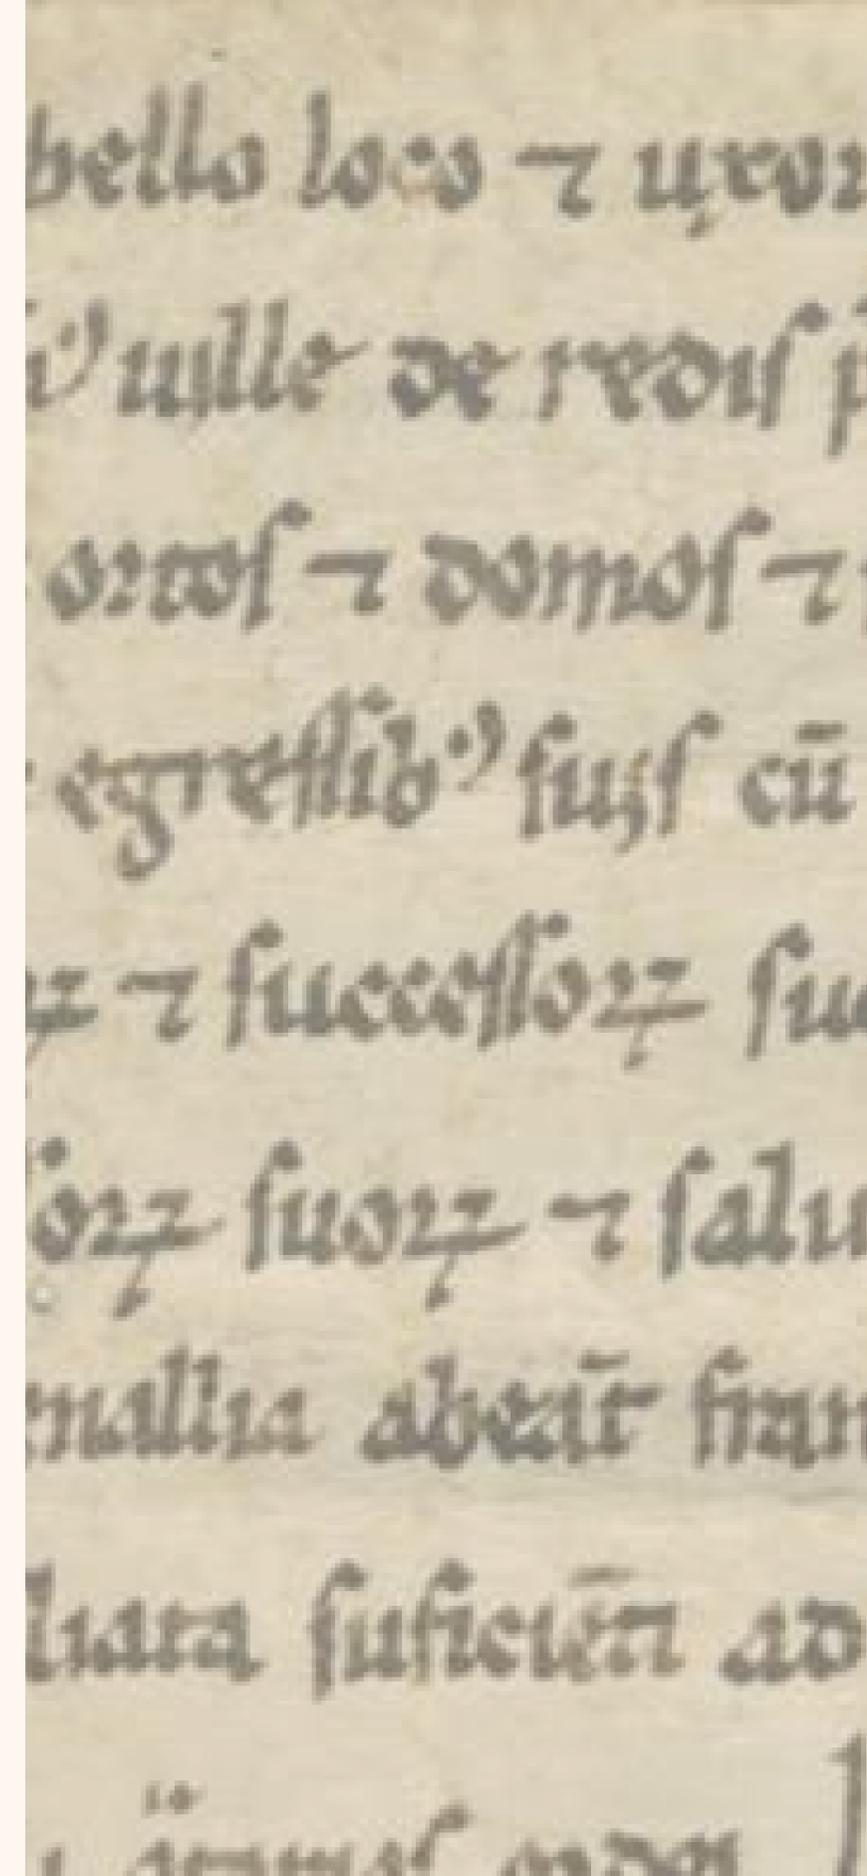 bello loco ⁊ uxor
uille de redis
ortos ⁊ domos ⁊
egressibꝰ suis cū
⁊ successoꝝ suo
soꝝ suoꝝ ⁊ salu
abeāt fran
suficiēti ad